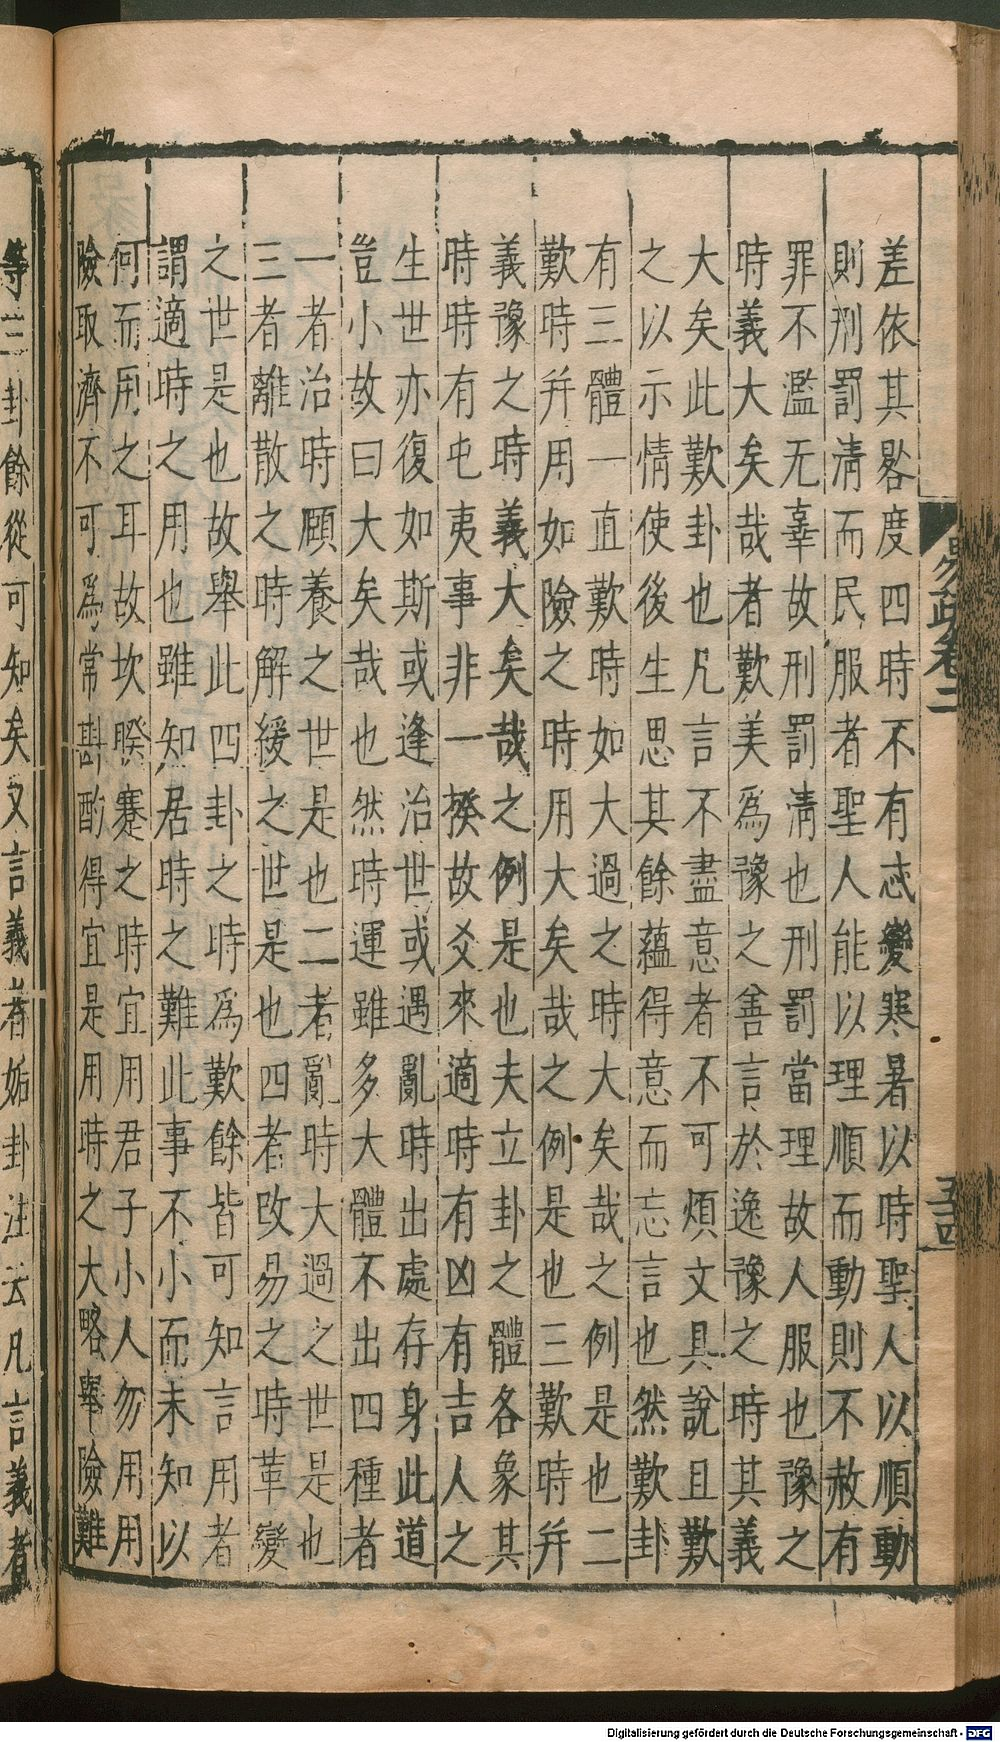 差依其晷度四時不有忒變寒暑以時聖人以順動
則刑罰清而民服者聖人能以理順而動則不赦有
罪不濫无辜故刑罰清也刑罰當理故人服也豫之
時義大矣哉者歎美為豫之善言於逸豫之時其義
大矣此歎卦也凡言不盡意者不可煩文具說且歎
之以示情使後生思其餘蘊得意而忘言也然歎卦
有三體一直歎時如大過之時大矣哉之例是也二
歎時并用如險之時用大矣哉之例是也三歎時并
義豫之時義大矣哉之例是也夫立卦之體各象其
時時有屯夷事非一揆故爻來適時有凶有吉人之
生世亦復如斯或逢治世或遇亂時出處存身此道
豈小故曰大矣哉也然時運雖多大體不出四種者
一者治時頤養之世是也二者亂時大過之世是也
三者離散之時解緩之世是也四者改易之時革變
之世是也故舉此四卦之時為歎餘皆可知言用者
謂適時之用也雖知居時之難此事不小而未知以
何而用之耳故坎睽蹇之時宜用君子小人勿用用
險取濟不可為常斟酌得宜是用時之大略舉險難
等三卦餘從可知矣又言義者姤卦注云凡言義者
易疏卷二
五十四
Digitalisierung gefördert durch die Deutsche Forschungsgemeinschaft - DFG